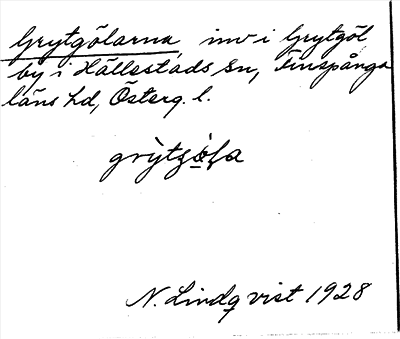 Grytgölarna, inv i Grytgöl
by i Hällestads sn, Finspånga
läns hd, Österg. l.
grỳtgö̀ɭa
N. Lindqvist 1928